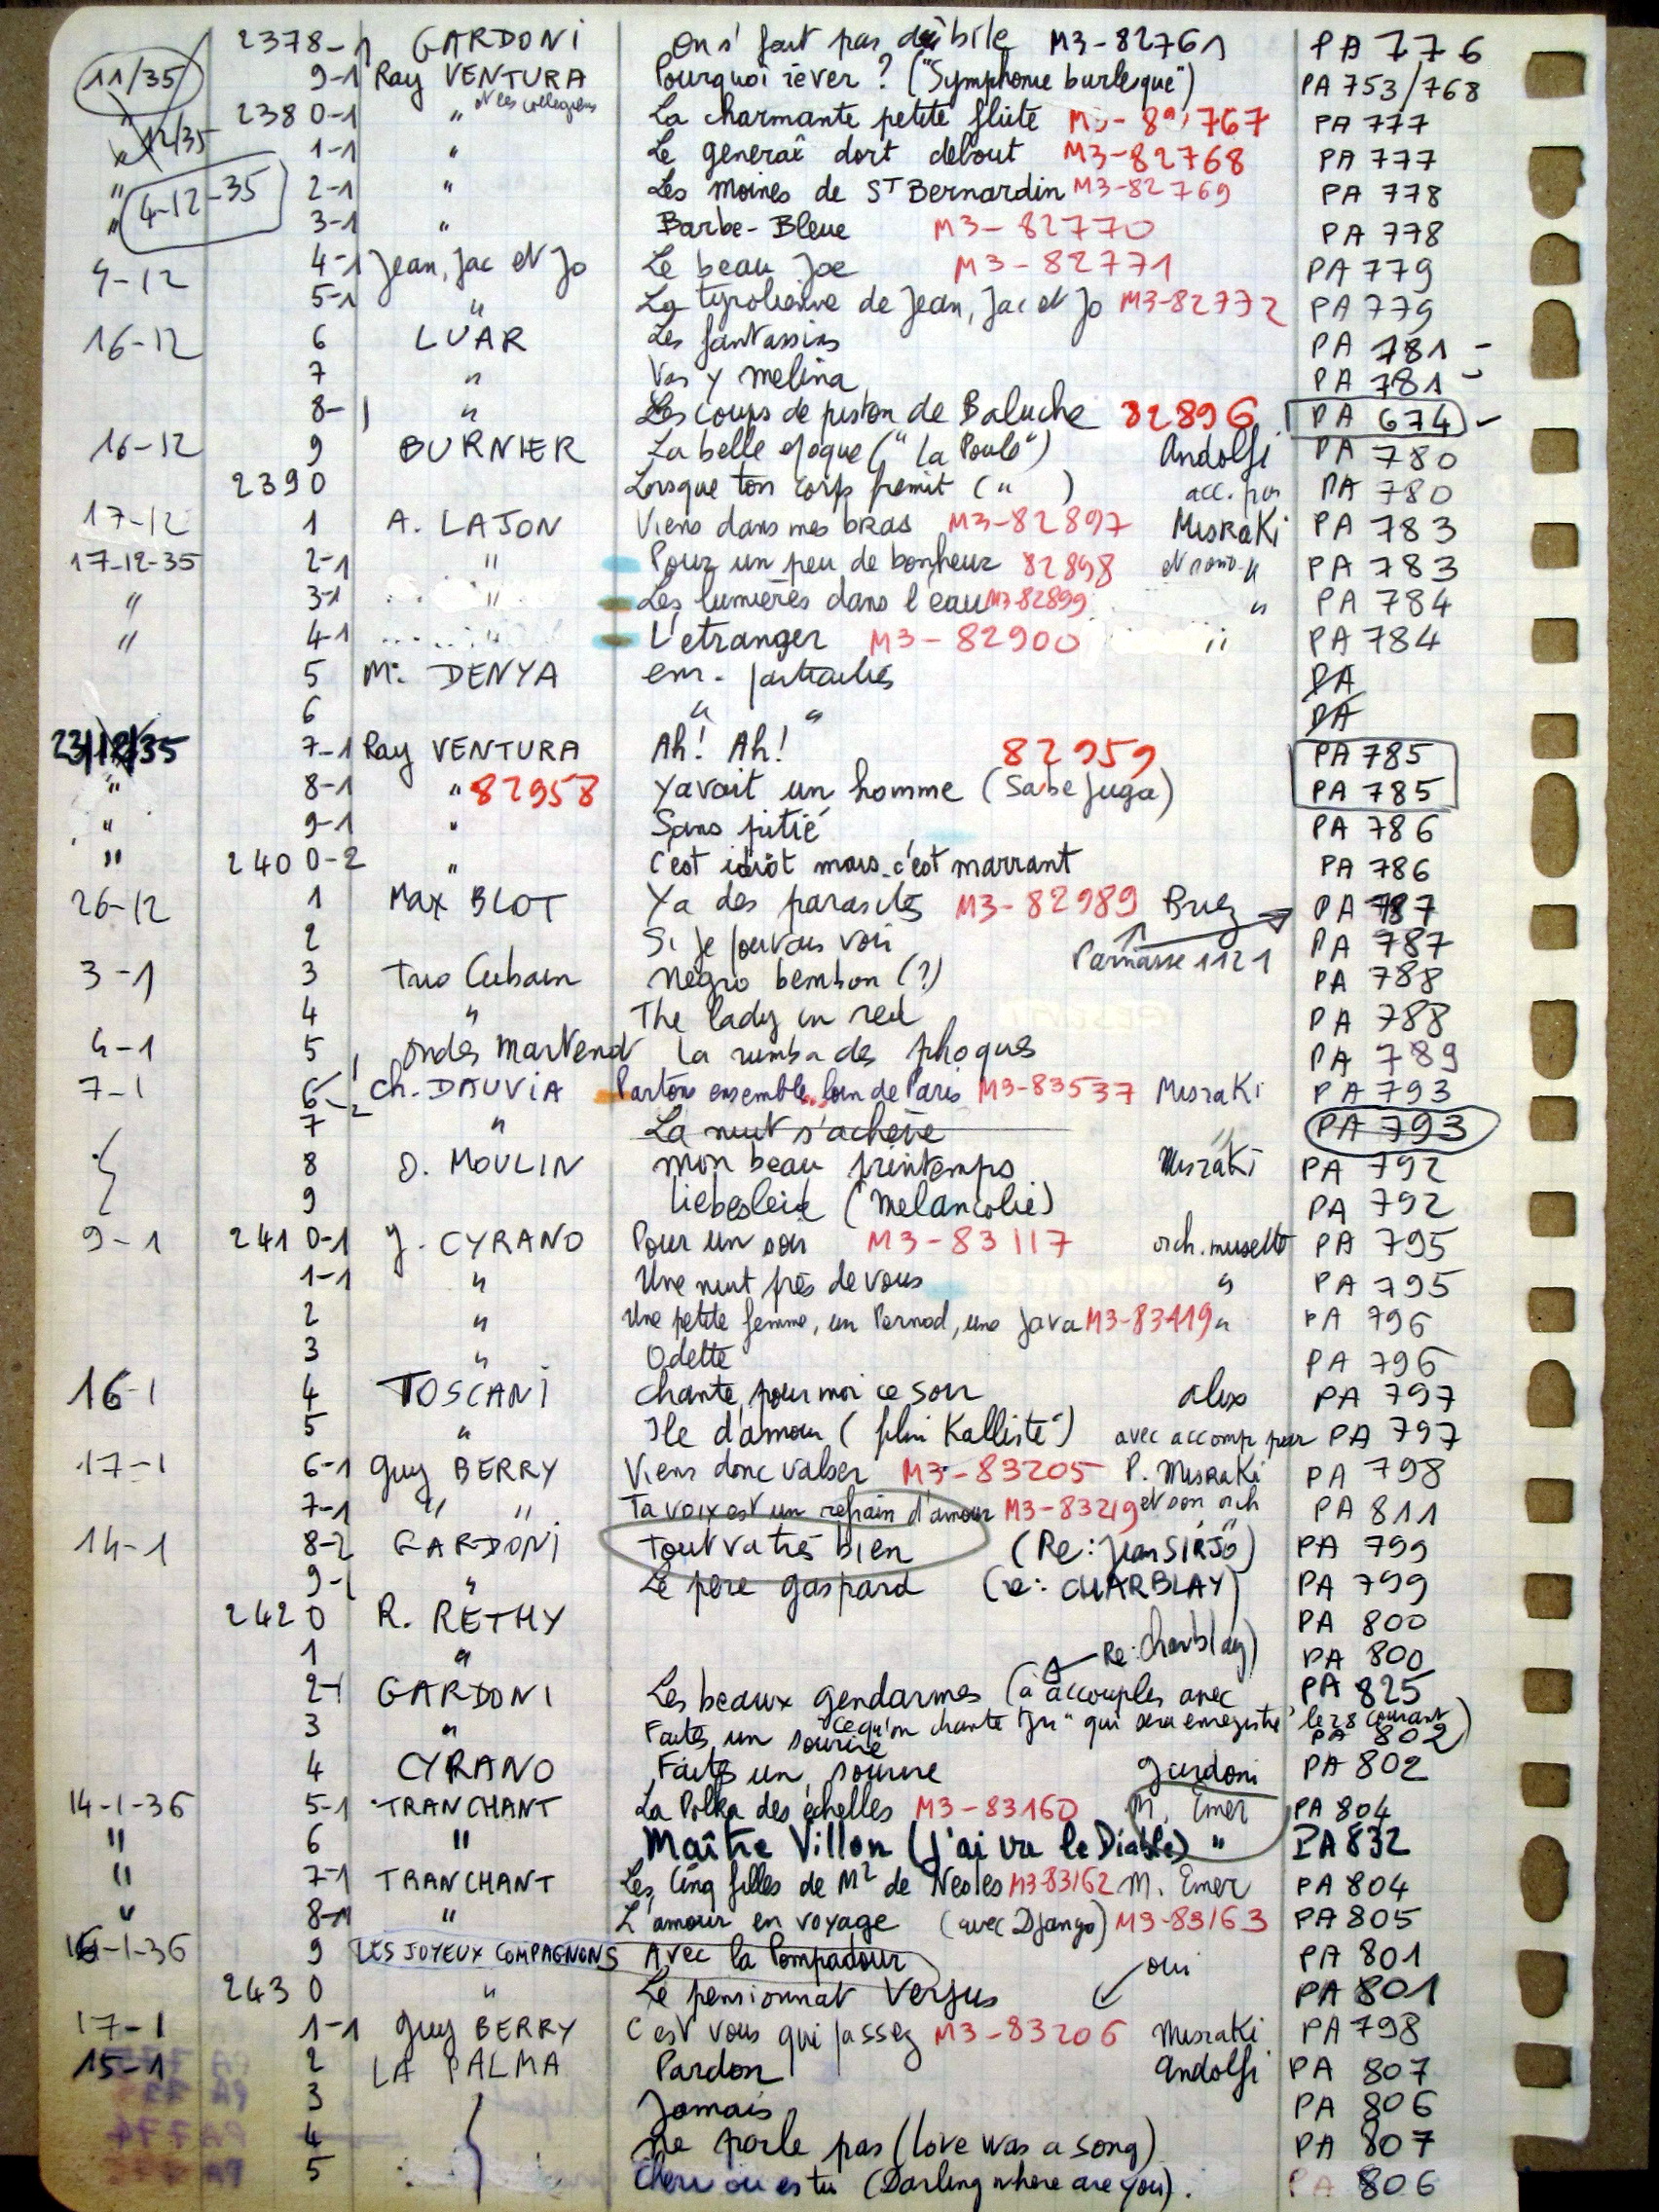 2378-1 GARDONI On s' fait pas de bile M3-82761 PA 776
11/35 9-1 Ray VENTURA Pourquoi rêver ? ("Symphonie burlesque") PA 753/768
" 2380-1 " et les collegiens La charmante petite flûte M3-82767 PA 777
" 12/35 1-1 " Le general dort debout M3-82768 PA 777
" 4-12-35 2-1 " Les moines de ST Bernardin M3-82769 PA 778
" 3-1 " Barbe-Bleue M3-82770 PA 778
4-12 4-1 Jean, Jac et Jo Le beau Joe M3-82771 PA 779
5-1 " La tyrolienne de Jean, Jac et Jo M3-82772 PA 779
16-12 6 LUAR Les fantassins PA 781 -
7 " Vas y melina PA 781 -
8-1 " Les coups de piston de Baluche 82896 PA 674
16-12 9 BURNIER La belle epoque ("La Poule") Andolfi PA 780
2390 Lorsque ton corps fremit ( " ) acc. par PA 780
17-12 1 A. LAJON Viens dans mes bras M3-82897 MISRAKI PA 783
17-12-35 2-1 " Pour un peu de bonheur 82898 et son o. " PA 783
" 3-1 " Les lumières dans l'eau M3-82899 " PA 784
" 4-1 " L'etranger M3-82900 " PA 784
5 M. DENYA enr. particuliers PA
6 " " PA
23/12/35 7-1 Ray VENTURA Ah! Ah! 82959 PA 785
" 8-1 " 82958 Yavait un homme (Sabe Juga) PA 785
" 9-1 " Sans pitié PA 786
" 2400-2 " C'est idiot mais c'est marrant PA 786
26-12 1 Max BLOT Ya des parasites M3-82989 Bruez PA 787
2 Si je pouvais voir Parnasse 1121 PA 787
3-1 3 Trio Cubain Negro bembon (?) PA 788
4 " The lady in red PA 788
4-1 5 ondes Martenot La rumba des phoques PA 789
7-1 6-1-2 Ch. DAUVIA Partons ensemble loin de Paris M3-83537 Misraki PA 793
7 " La nuit s'achève " PA 793
8 O. MOULIN Mon beau printemps Misraki PA 792
9 Liebesleid (Melancolie) PA 792
9-1 2410-1 J. CYRANO Pour un soir M3-83117 orch. musette PA 795
1-1 " Une nuit près de vous " PA 795
2 " Une petite femme, un Pernod, une Java M3-83119 " PA 796
3 " Odette PA 796
16-1 4 TOSCANI Chante pour moi ce soir alex PA 797
5 " Ile d'amour (film Kalliste") avec accomp par PA 797
17-1 6-1 Guy BERRY Viens donc valser M3-83205 P. MISRAKI PA 798
7-1 " " Ta voix est un refrain d'amour M3-83219 et son orch PA 811
14-1 8-2 GARDONI Tout va très bien (Re: Jean SIRJO) PA 799
9-1 " Le père gaspard (re: CHARBLAY) PA 799
2420 R. RETHY PA 800
1 " Re: Charblay) PA 800
2-1 GARDONI Les beaux gendarmes (à accouples avec PA 825
"ce qu'on chante Jri" qui sera enregistré le 28 courant)
3 " Faites un sourire PA 802
4 CYRANO Faites un sourire gardoni PA 802
14-1-36 5-1 TRANCHANT La Polka des échelles M3-83160 M. Emer PA 804
" 6 " Maître Villon (J'ai vu le Diable) " PA 832
" 7-1 TRANCHANT Les cinq filles de Mr de Nesles M3-83162 M. Emer PA 804
" 8-1 " L'amour en voyage (avec Django) M3-83163 PA 805
16-1-36 9 LES JOYEUX COMPAGNONS Avec la Pompadour oui PA 801
2430 " Le pensionnat Verjus PA 801
17-1 1-1 Guy BERRY C'est vous qui passez M3-83206 Misraki PA 798
15-1 2 LA PALMA Pardon Andolfi PA 807
3 Jamais PA 806
4 Ne parle pas (love was a song) PA 807
5 Cheri ou es tu (Darling where are you). PA 806